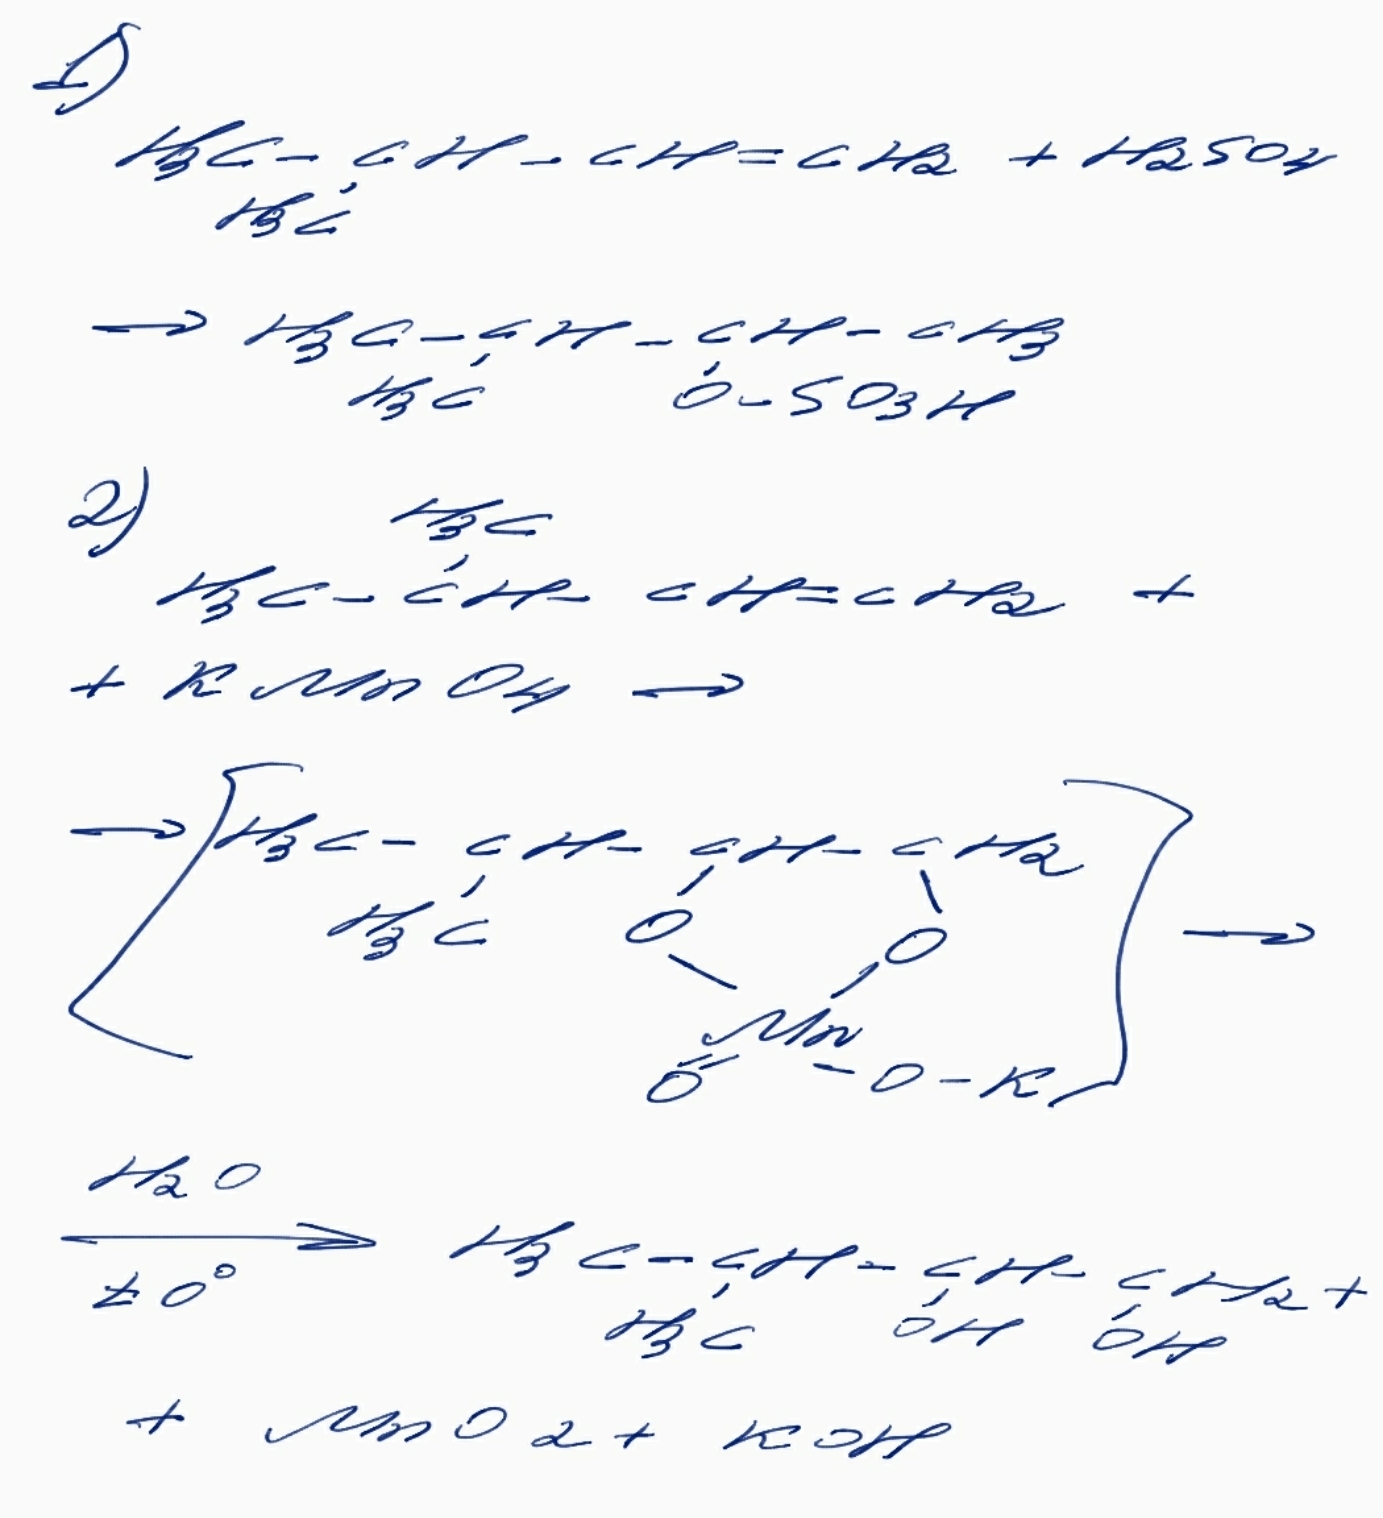 1)
H3C - CH - CH = CH2 + H2SO4
H3C
→ H3C - CH - CH - CH3
H3C O - SO3H
2)
H3C
H3C - CH - CH = CH2 +
+ KMnO4 →
→ [H3C - CH - CH - CH2
H3C O O ] →
Mn
O = - O - K
H2O
→ H3C - CH - CH - CH2 +
t 0°
H3C OH OH
+ MnO2 + KOH